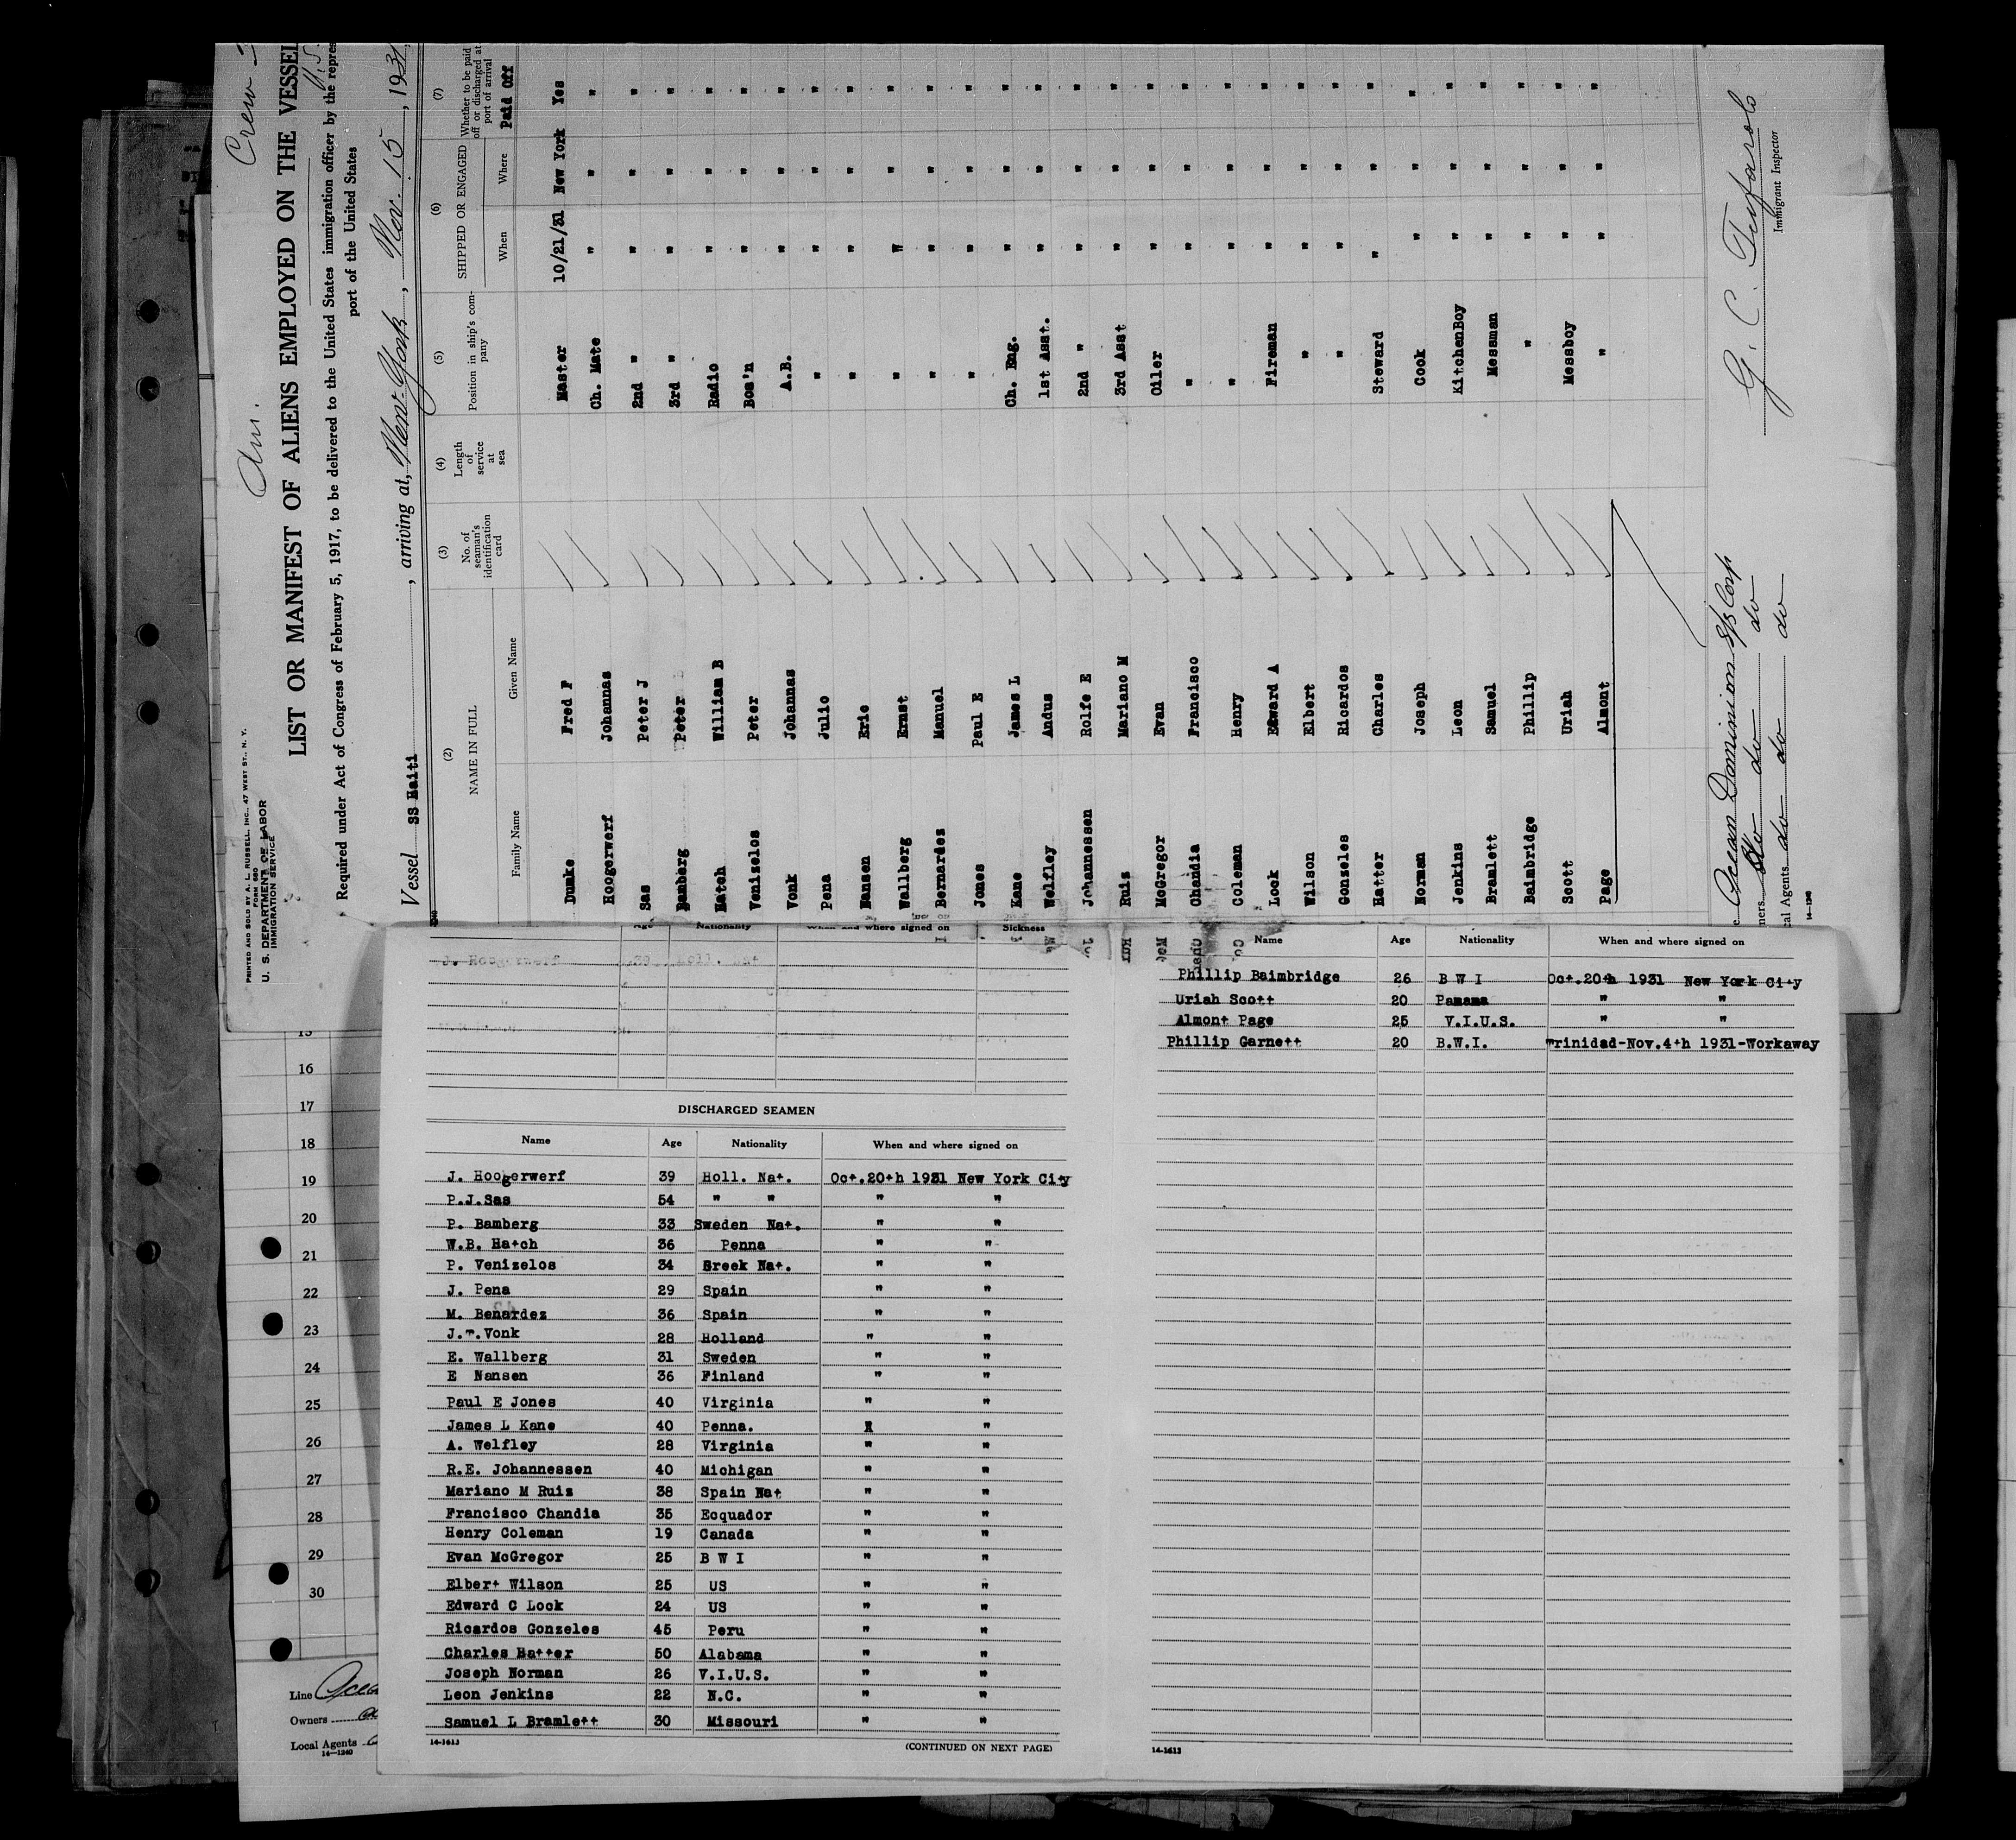 Crew
Am.
PRINTED AND SOLD BY A. L. RUSSELL, INC., 47 WEST ST., N. Y.
FORM 680
U. S. DEPARTMENT OF LABOR
IMMIGRATION SERVICE
LIST OR MANIFEST OF ALIENS EMPLOYED ON THE VESSEL
Required under Act of Congress of February 5, 1917, to be delivered to the United States immigration officer by the repres
port of the United States
Vessel SS Haiti, arriving at, New York, Nov. 15, 1931
(2) (3) (4) (5) (6) (7)
NAME IN FULL No. of seaman's identification card Length of service at sea Position in ship's company SHIPPED OR ENGAGED Whether to be paid off or discharged at port of arrival
Family Name Given Name When Where Paid Off
Dumke Fred P Master 10/21/31 New York Yes
Hoogerwerf Johannas Ch. Mate " " "
Sas Peter J 2nd " " " "
Bamberg Peter 3rd " " " "
Hatch William B Radio " " "
Venizelos Peter Bos'n " " "
Vonk Johannas A.B. " " "
Pena Julio " " " "
Nansen Eric " " " "
Wallberg Ernst " " " "
Bernardez Manuel " " " "
Jones Paul E " " " "
Kane James L Ch. Eng. " " "
Welfley Andus 1st Asst. " " "
Johannessen Rolfe E 2nd " " " "
Ruiz Mariano M 3rd Asst " " "
McGregor Evan Oiler " " "
Chandia Francisco " " " "
Coleman Henry " " " "
Lock Edward A Fireman " " "
Wilson Elbert " " " "
Gonzeles Ricardos " " " "
Hatter Charles Steward " " "
Norman Joseph Cook " " "
Jenkins Leon KitchenBoy " " "
Bramlett Samuel Messman " " "
Baimbridge Phillip " " " "
Scott Uriah Messboy " " "
Page Almont " " " "
Ocean Dominion S/S Corp
ners do do do
al Agents do do do
14-1240
G. C. Tufarolo
Immigrant Inspector
Age Nationality When and where signed on Sickness
J. Hoogerwerf 39 Holl. Nat
DISCHARGED SEAMEN
Name Age Nationality When and where signed on
J. Hoogerwerf 39 Holl. Nat. Oct.20th 1931 New York City
P.J.Sas 54 " " " "
P. Bamberg 33 Sweden Nat. " "
W.B. Hatch 36 Penna " "
P. Venizelos 34 Greek Nat. " "
J. Pena 29 Spain " "
M. Benardez 36 Spain " "
J.T.Vonk 28 Holland " "
E. Wallberg 31 Sweden " "
E Nansen 36 Finland " "
Paul E Jones 40 Virginia " "
James L Kane 40 Penna. " "
A. Welfley 28 Virginia " "
R.E. Johannessen 40 Michigan " "
Mariano M Ruiz 38 Spain Nat " "
Francisco Chandia 35 Ecquador " "
Henry Coleman 19 Canada " "
Evan McGregor 25 B W I " "
Elbert Wilson 25 US " "
Edward C Lock 24 US " "
Ricardos Gonzeles 45 Peru " "
Charles Hatter 50 Alabama " "
Joseph Norman 26 V.I.U.S. " "
Leon Jenkins 22 N.C. " "
Samuel L Bramlett 30 Missouri " "
14-1613
(CONTINUED ON NEXT PAGE)
Name Age Nationality When and where signed on
Phillip Baimbridge 26 B W I Oct.20th 1931 New York City
Uriah Scott 20 Panama " "
Almont Page 25 V.I.U.S. " "
Phillip Garnett 20 B.W.I. Trinidad-Nov.4th 1931-Workaway
14-1613
15
16
17
18
19
20
21
22
23
24
25
26
27
28
29
30
Line Ocea
Owners
Local Agents
14-1240